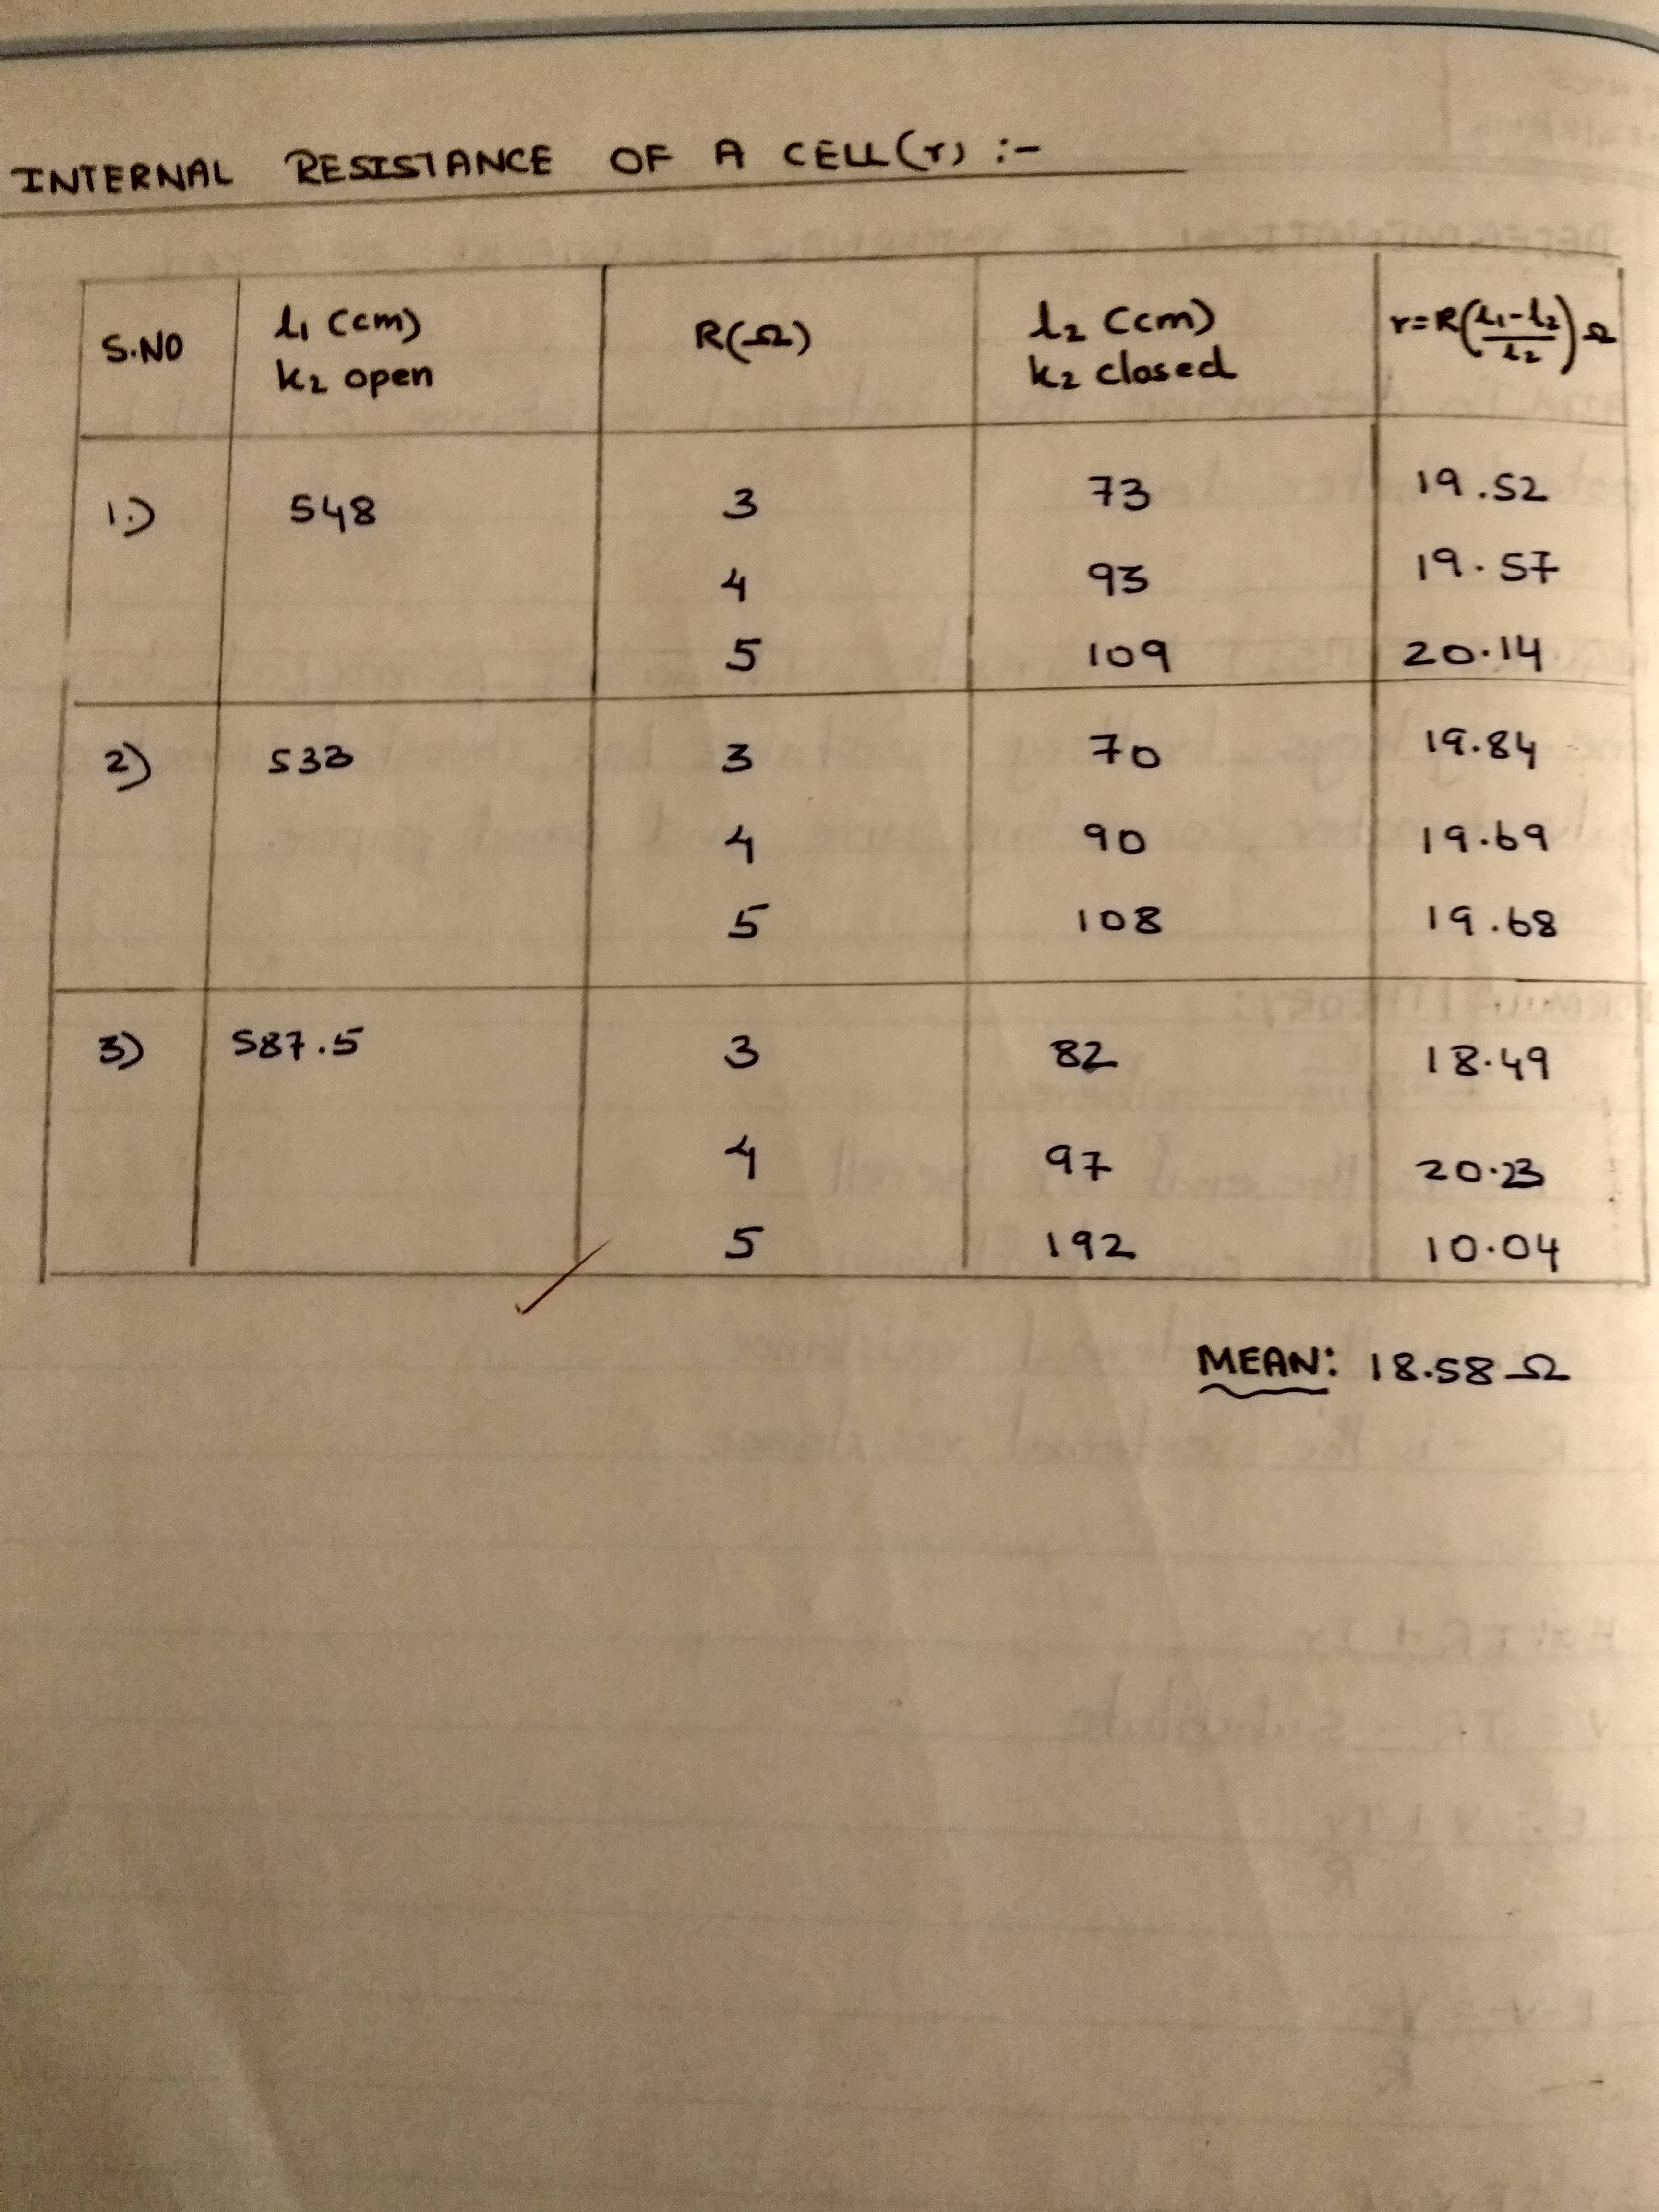 INTERNAL RESISTANCE OF A CELL(r) :-
S.NO l1 (cm) k2 open R(Ω) l2 (cm) k2 closed r=R(l1-l2/l2)Ω
1.) 548 3 73 19.52
4 93 19.57
5 109 20.14
2) 533 3 70 19.84
4 90 19.69
5 108 19.68
3) 587.5 3 82 18.49
4 97 20.23
5 192 10.04
MEAN: 18.58 Ω